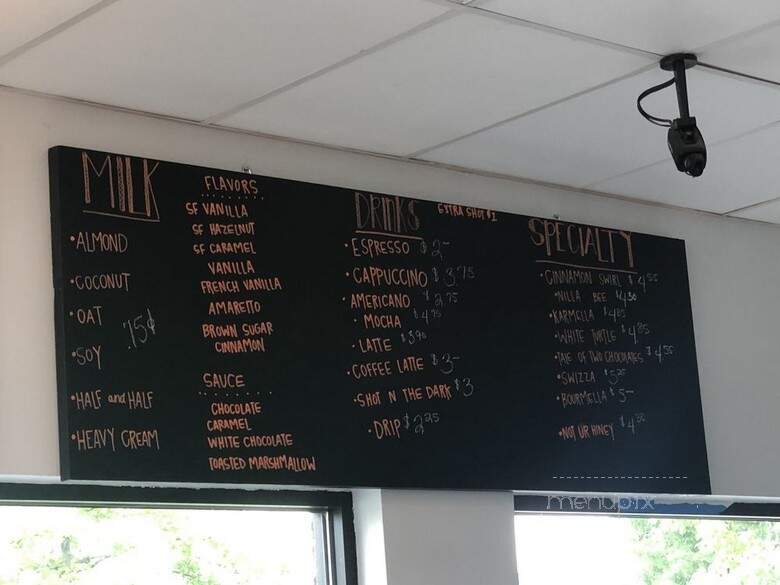 MILK
• ALMOND
• COCONUT
• OAT
.75¢
• SOY
• HALF and HALF
• HEAVY CREAM
FLAVORS
SF VANILLA
SF HAZELNUT
SF CARAMEL
VANILLA
FRENCH VANILLA
AMARETTO
BROWN SUGAR
CINNAMON
SAUCE
CHOCOLATE
CARAMEL
WHITE CHOCOLATE
TOASTED MARSHMALLOW
DRINKS
EXTRA SHOT $1
• ESPRESSO $2-
• CAPPUCCINO $3.75
• AMERICANO $2.75
• MOCHA $4.75
• LATTE $3.90
• COFFEE LATTE $3-
• SHOT N THE DARK $3
• DRIP $2.25
SPECIALTY
• CINNAMON SWIRL $4.55
• NILLA BEE $4.50
• KARMELLA $4.85
• WHITE TURTLE $4.85
• TALE OF TWO CHOCOLATES $4.55
• SWIZZA $5.25
• BOURMELLA $5-
• NOT UR HONEY $4.50
menupix